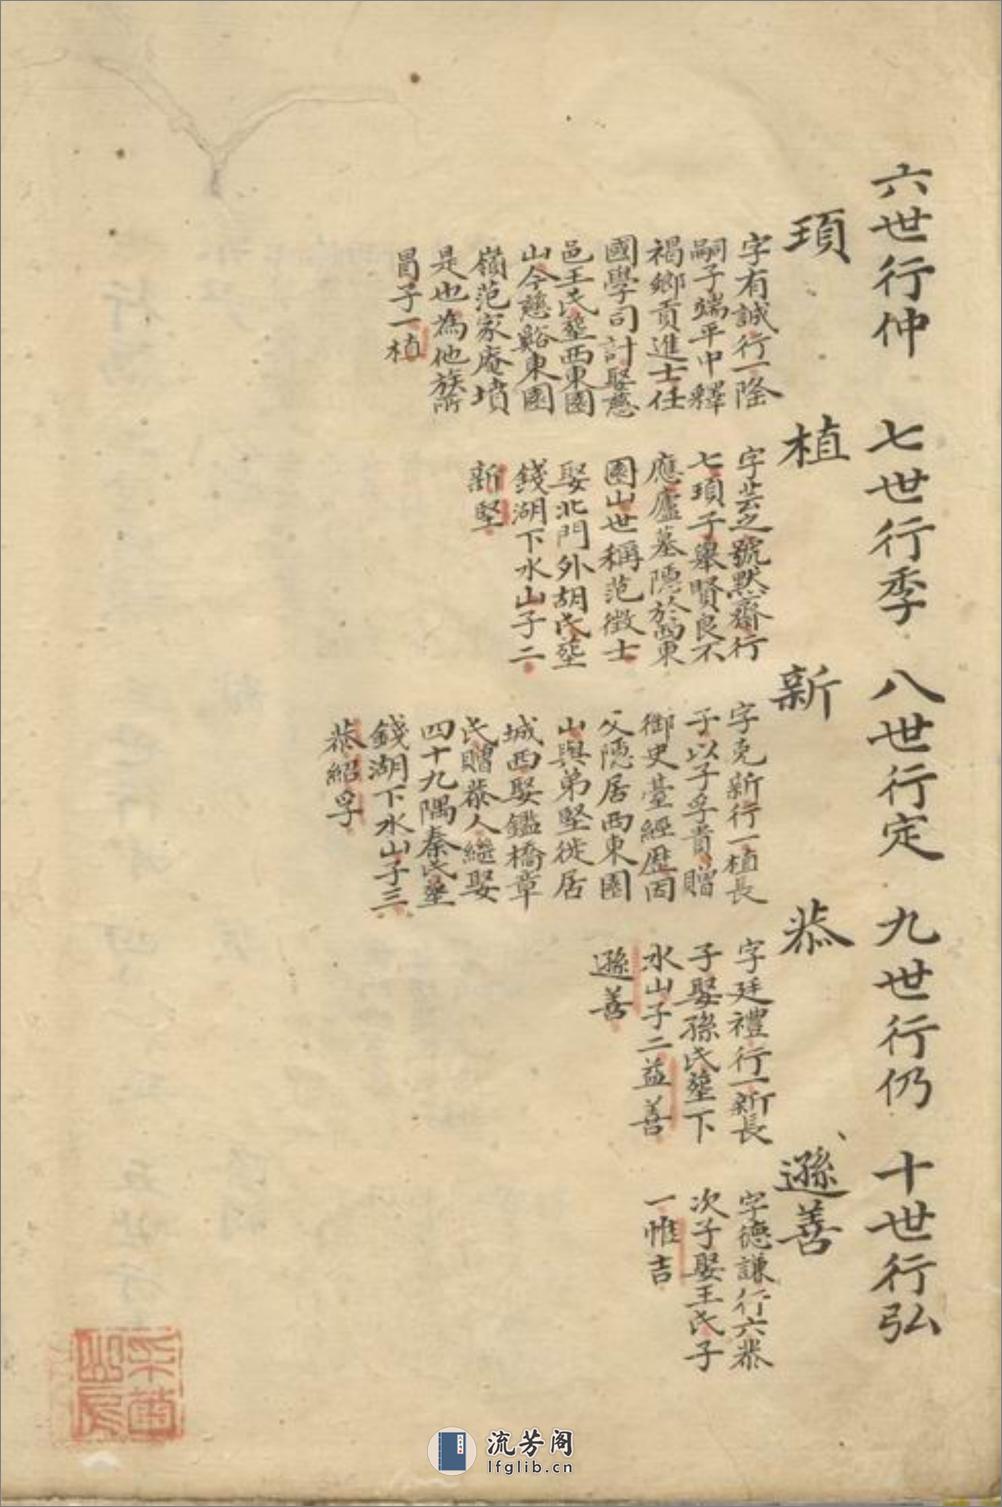 六世行仲
七世行季
八世行定
九世行仍
十世行弘
頊
字有誠行一隆
嗣子端平中釋
褐鄉貢進士任
國學司計娶慈
邑王氏塟西東園
山今慈谿東園
嶺范家庵墳
是也為他族所
冒子一植
植
字芸之號默齋行
七頊子舉賢良不
應廬墓隱於西東
園山世稱范徵士
娶北門外胡氏塟
錢湖下水山子二
新堅
新
字克新行一植長
子以子孚貴贈
御史臺經歷因
父隱居西東園
山與弟堅徙居
城西娶鑑橋章
氏贈恭人繼娶
四十九隅秦氏塟
錢湖下水山子三
恭紹孚
恭
字廷禮行一新長
子娶孫氏塟下
水山子二益善
遜善
遜善
字德謙行六恭
次子娶王氏子
一惟吉
流芳阁
lfglib.cn